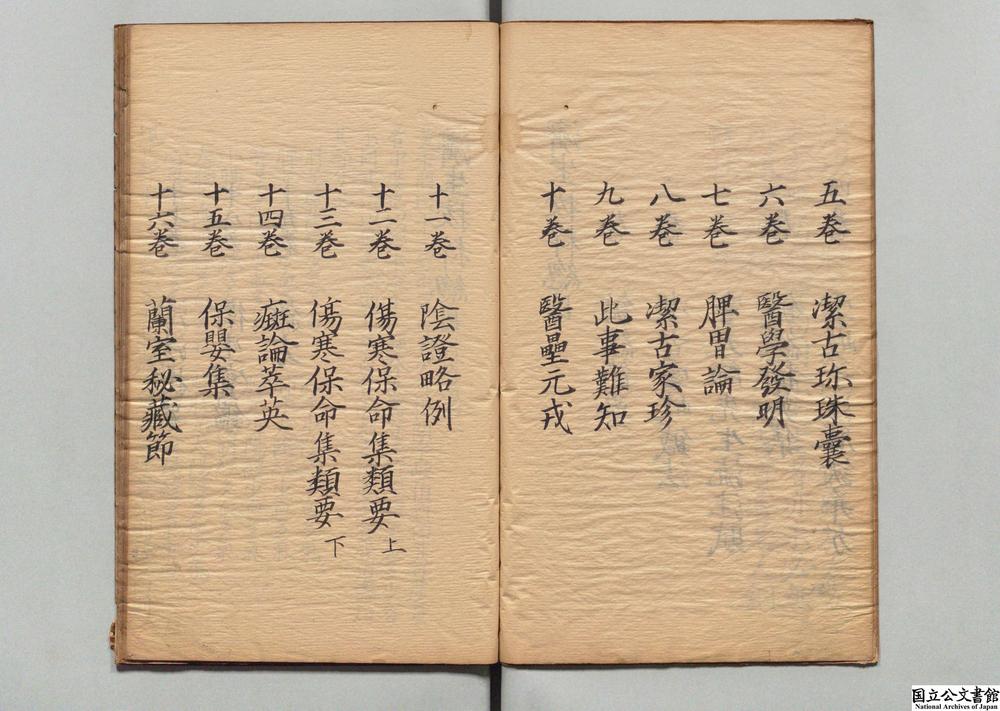 五卷 潔古珎珠囊
六卷 醫學發明
七卷 脾胃論
八卷 潔古家珍
九卷 此事難知
十卷 醫壘元戎
十一卷 陰證略例
十二卷 傷寒保命集類要 上
十三卷 傷寒保命集類要 下
十四卷 癍論萃英
十五卷 保嬰集
十六卷 蘭室秘藏節
国立公文書館
National Archives of Japan